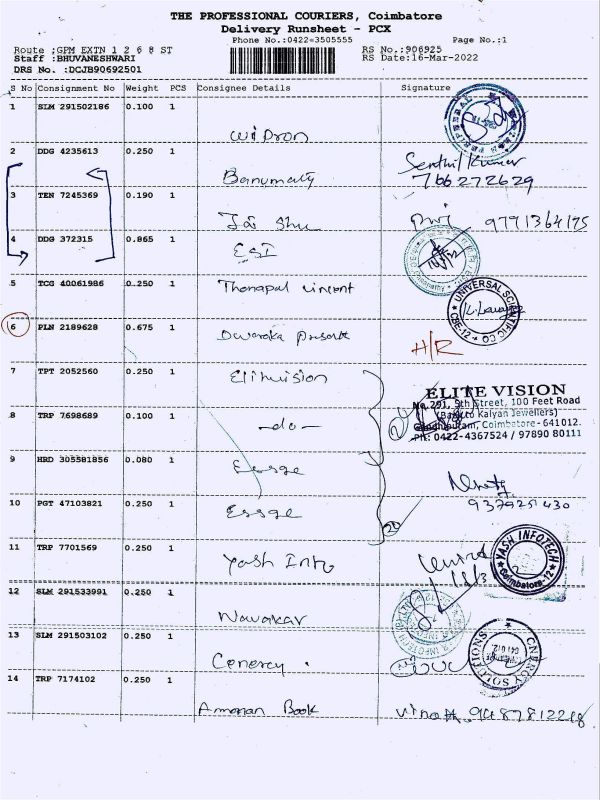 THE PROFESSIONAL COURIERS, Coimbatore
Delivery Runsheet - PCX
Phone No.:0422-3505555 Page No.:1
Route :GPM EXTN 1 2 6 8 ST RS No.:906925
Staff :BHUVANESHWARI RS Date:16-Mar-2022
DRS No. :DCJB90692501
S No Consignment No Weight PCS Consignee Details Signature
1 SLM 291502186 0.100 1
2 DDG 4235613 0.250 1
Banumaty Senthil Kumar
766272629
3 TEN 7245369 0.190 1
Jai 9791364175
4 DDG 372315 0.865 1
ESI
5 TCG 40061986 0.250 1
Thanapal vincent
UNIVERSAL SCIENTIFIC CO
CBE-12
6 PLN 2189628 0.675 1
Dwaraka H/R
7 TPT 2052560 0.250 1
Elitvision
ELITE VISION
No.291, 9th Street, 100 Feet Road
(Back to Kalyan Jewellers)
Gandhipuram, Coimbatore-641012.
PH: 0422-4367524 / 97890 80111
8 TRP 7698689 0.100 1
-do-
9 HRD 305581856 0.080 1
Essge
10 PGT 47103821 0.250 1
Essge 9379251430
11 TRP 7701569 0.250 1
Yash Info
YASH INFOTECH
Coimbatore-12
12 SLM 291533991 0.250 1
Navakar
13 SLM 291503102 0.250 1
Cenergy
CNERGY SOLUTIONS
14 TRP 7174102 0.250 1
Book 9487812218